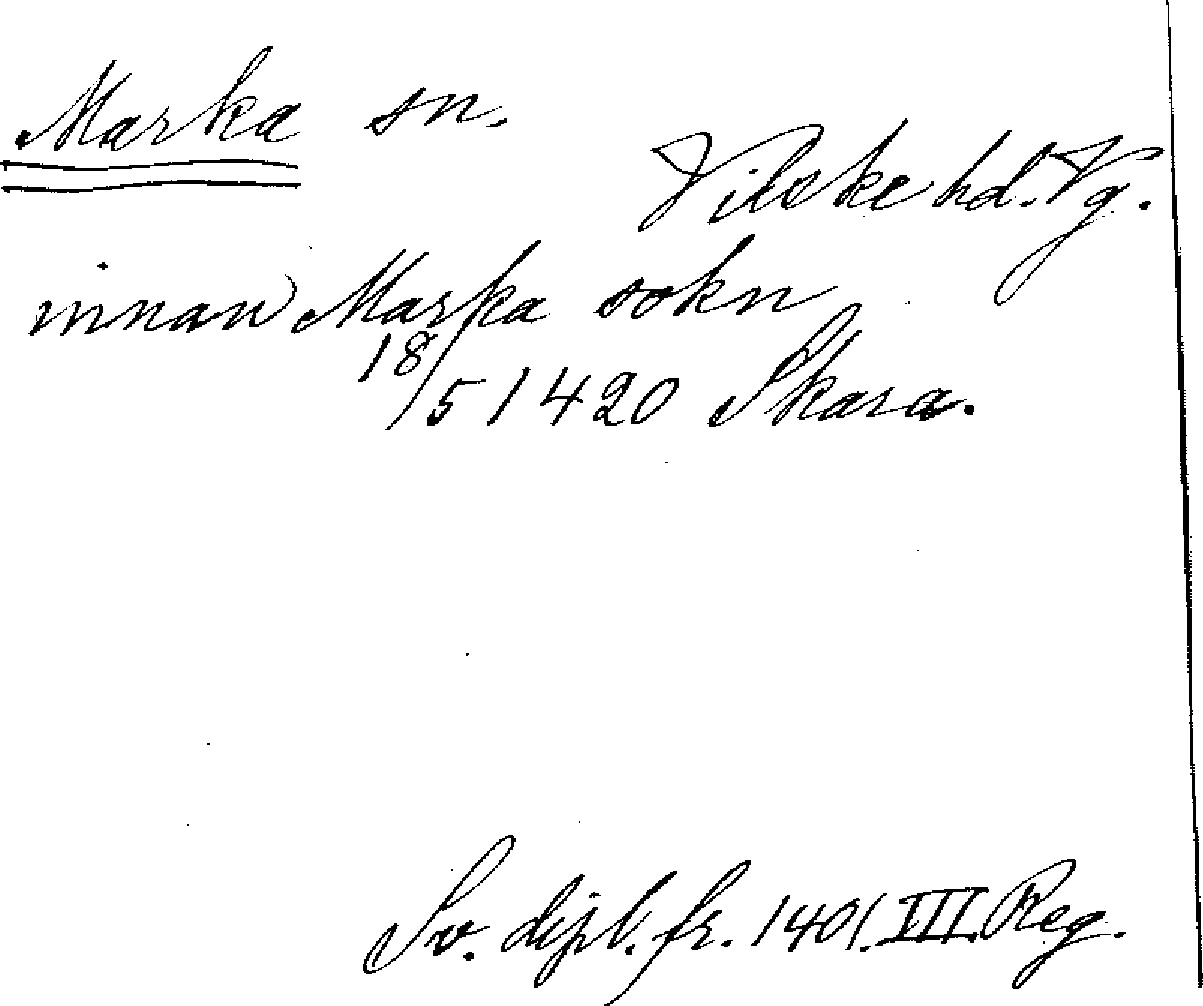 Marka sn.
Vilske hd. Vg.
innan Marka sokn
18/5 1420 Skara.
Sv. dipl. fr. 1401. III. Reg.